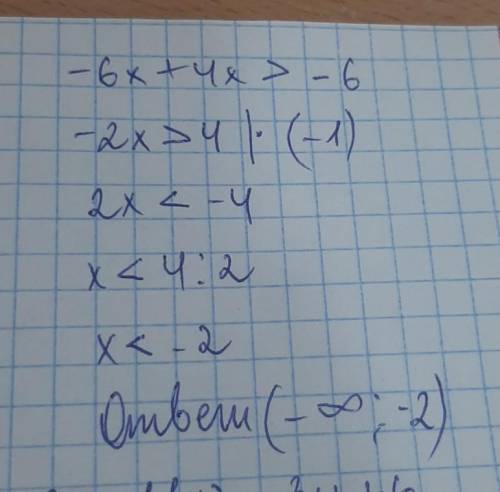 -6x + 4x > -6
-2x > 4 | · (-1)
2x < -4
x < 4 : 2
x < -2
Ответ (-∞; -2)